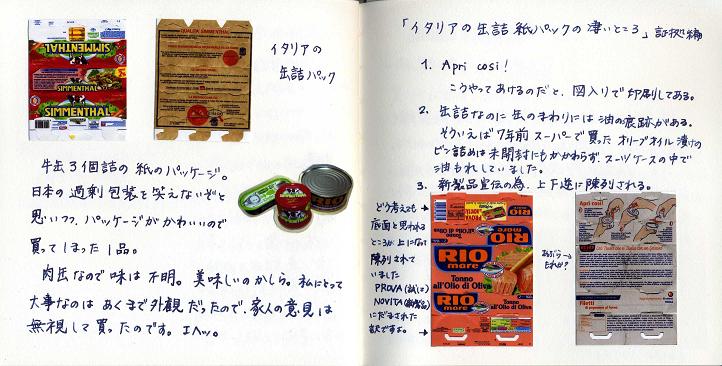 イタリアの
缶詰パック
SIMMENTHAL
SIMMENTHAL
SIMMENTHAL
牛缶3個詰の紙のパッケージ。
日本の過剰包装を笑えないぞと
思いつつ、パッケージがかわいいので
買ってしまった1品。
肉缶なので味は不明。美味しいのかしら。私にとって
大事なのはあくまで外観だったので、家人の意見は
無視して買ったのです。エヘッ。
「イタリアの缶詰紙パックの凄いところ」証拠編
1. Apri cosi!
こうやってあけるのだと、図入りで印刷してある。
2. 缶詰なのに缶のまわりには油の痕跡がある。
そういえば7年前スーパーで買ったオリーブオイル漬けの
ビン詰めは未開封にもかかわらず、スーツケースの中で
油もれしていました。
3. 新製品宣伝の為、上下逆に陳列される。
どう考えても
底面と思われる
ところが上になって
陳列されて
いました
PROVA(試に)
NOVITA(新製品)
にだまされた
訳ですよ。
RIO
mare
Tonno
all'Olio di Oliva
RIO
mare
Tonno
all'Olio di Oliva
あぶら
たれか?
Apri cosi!
Filetti